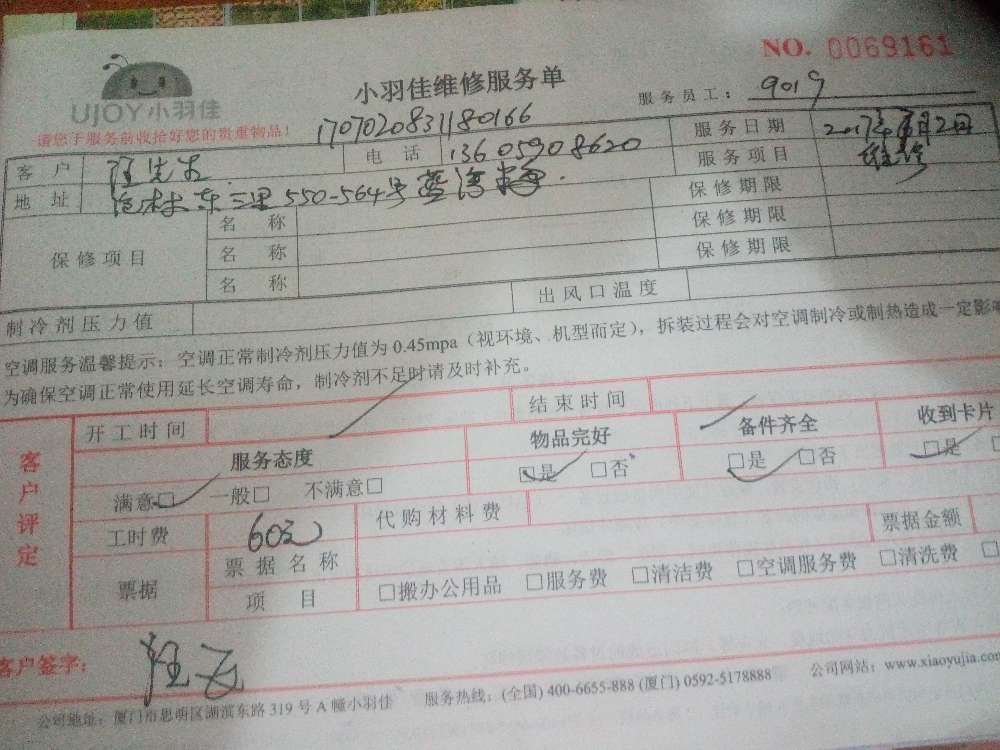 NO. 0069161
UJOY小羽佳
小羽佳维修服务单
服务员工: 9019
请您于服务前收拾好您的贵重物品!
1707020831180166
客户 先生 电话 13605908620 服务日期 2017年 月2日
地址 东三里550-564号蓝湾 服务项目 维修
保修项目 名称 保修期限
名称 保修期限
名称 保修期限
制冷剂压力值 出风口温度
空调服务温馨提示:空调正常制冷剂压力值为0.45mpa(视环境、机型而定),拆装过程会对空调制冷或制热造成一定影
为确保空调正常使用延长空调寿命,制冷剂不足时请及时补充。
客户评定 开工时间 结束时间
服务态度 物品完好 备件齐全 收到卡片
满意□ 一般□ 不满意□ □是 □否 □是 □否 □是
工时费 60元 代购材料费
票据 票据名称 票据金额
项目 □搬办公用品 □服务费 □清洁费 □空调服务费 □清洗费
客户签字:
公司地址:厦门市思明区湖滨东路319号A幢小羽佳 服务热线:(全国) 400-6655-888 (厦门) 0592-5178888 公司网站:www.xiaoyujia.com